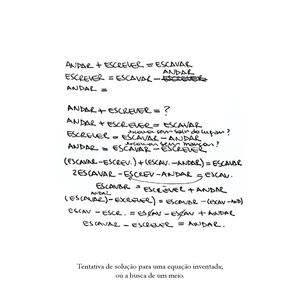 ANDAR + ESCREVER = ESCAVAR
ANDAR
ESCREVER = ESCAVAR - ESCREVER
ANDAR =
ANDAR + ESCREVER = ?
ANDAR + ESCREVER = ESCAVAR
escavar sem sair do lugar?
ESCREVER = ESCAVAR - ANDAR
ANDAR = ESCAVAR - ESCREVER
(ESCAVAR - ESCREV.) + (ESCAV. - ANDAR) = ESCAVAR
2ESCAVAR - ESCREV - ANDAR = ESCAV.
ESCAVAR = ESCREVER + ANDAR
ANDAR
(ESCAVAR) - ESCREVER) = ESCAVAR - (ESCAV - AND)
ESCAV - ESCR. = ESCAV - ESCAV + ANDAR
ESCAVAR - ESCREVER = ANDAR.
Tentativa de solução para uma equação inventada;
ou a busca de um meio.